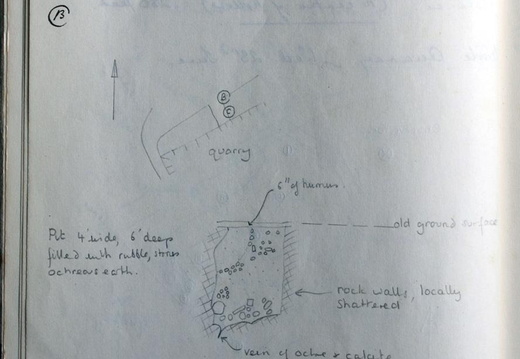 B
B
C
quarry
6" of humus
old ground surface
Pit 4' wide, 6' deep
filled with rubble, stones
ochreous earth.
rock walls, locally
shattered
vein of ochre & calcite